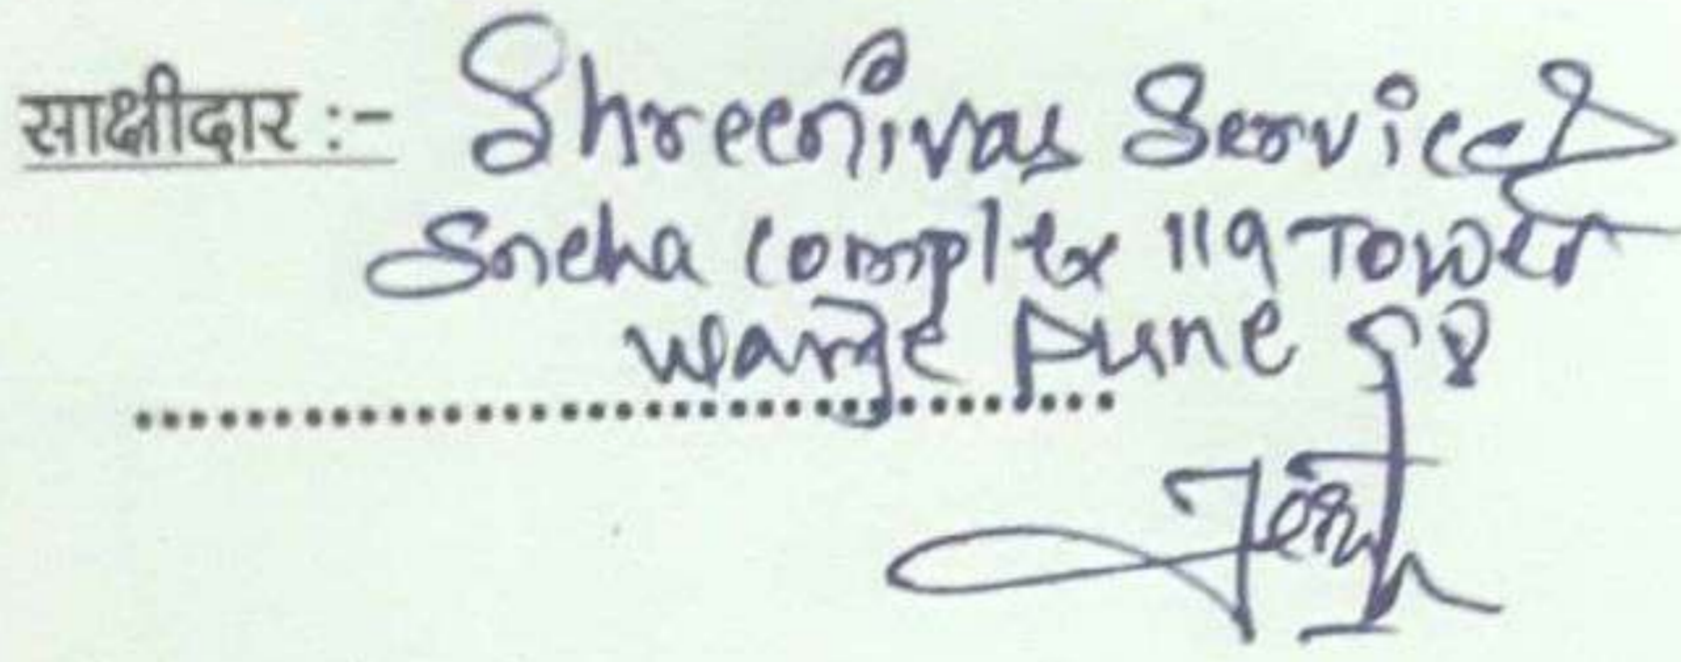 साक्षीदार :- Shreenivas Services
Sneha complex 119 Tower
warje pune 58